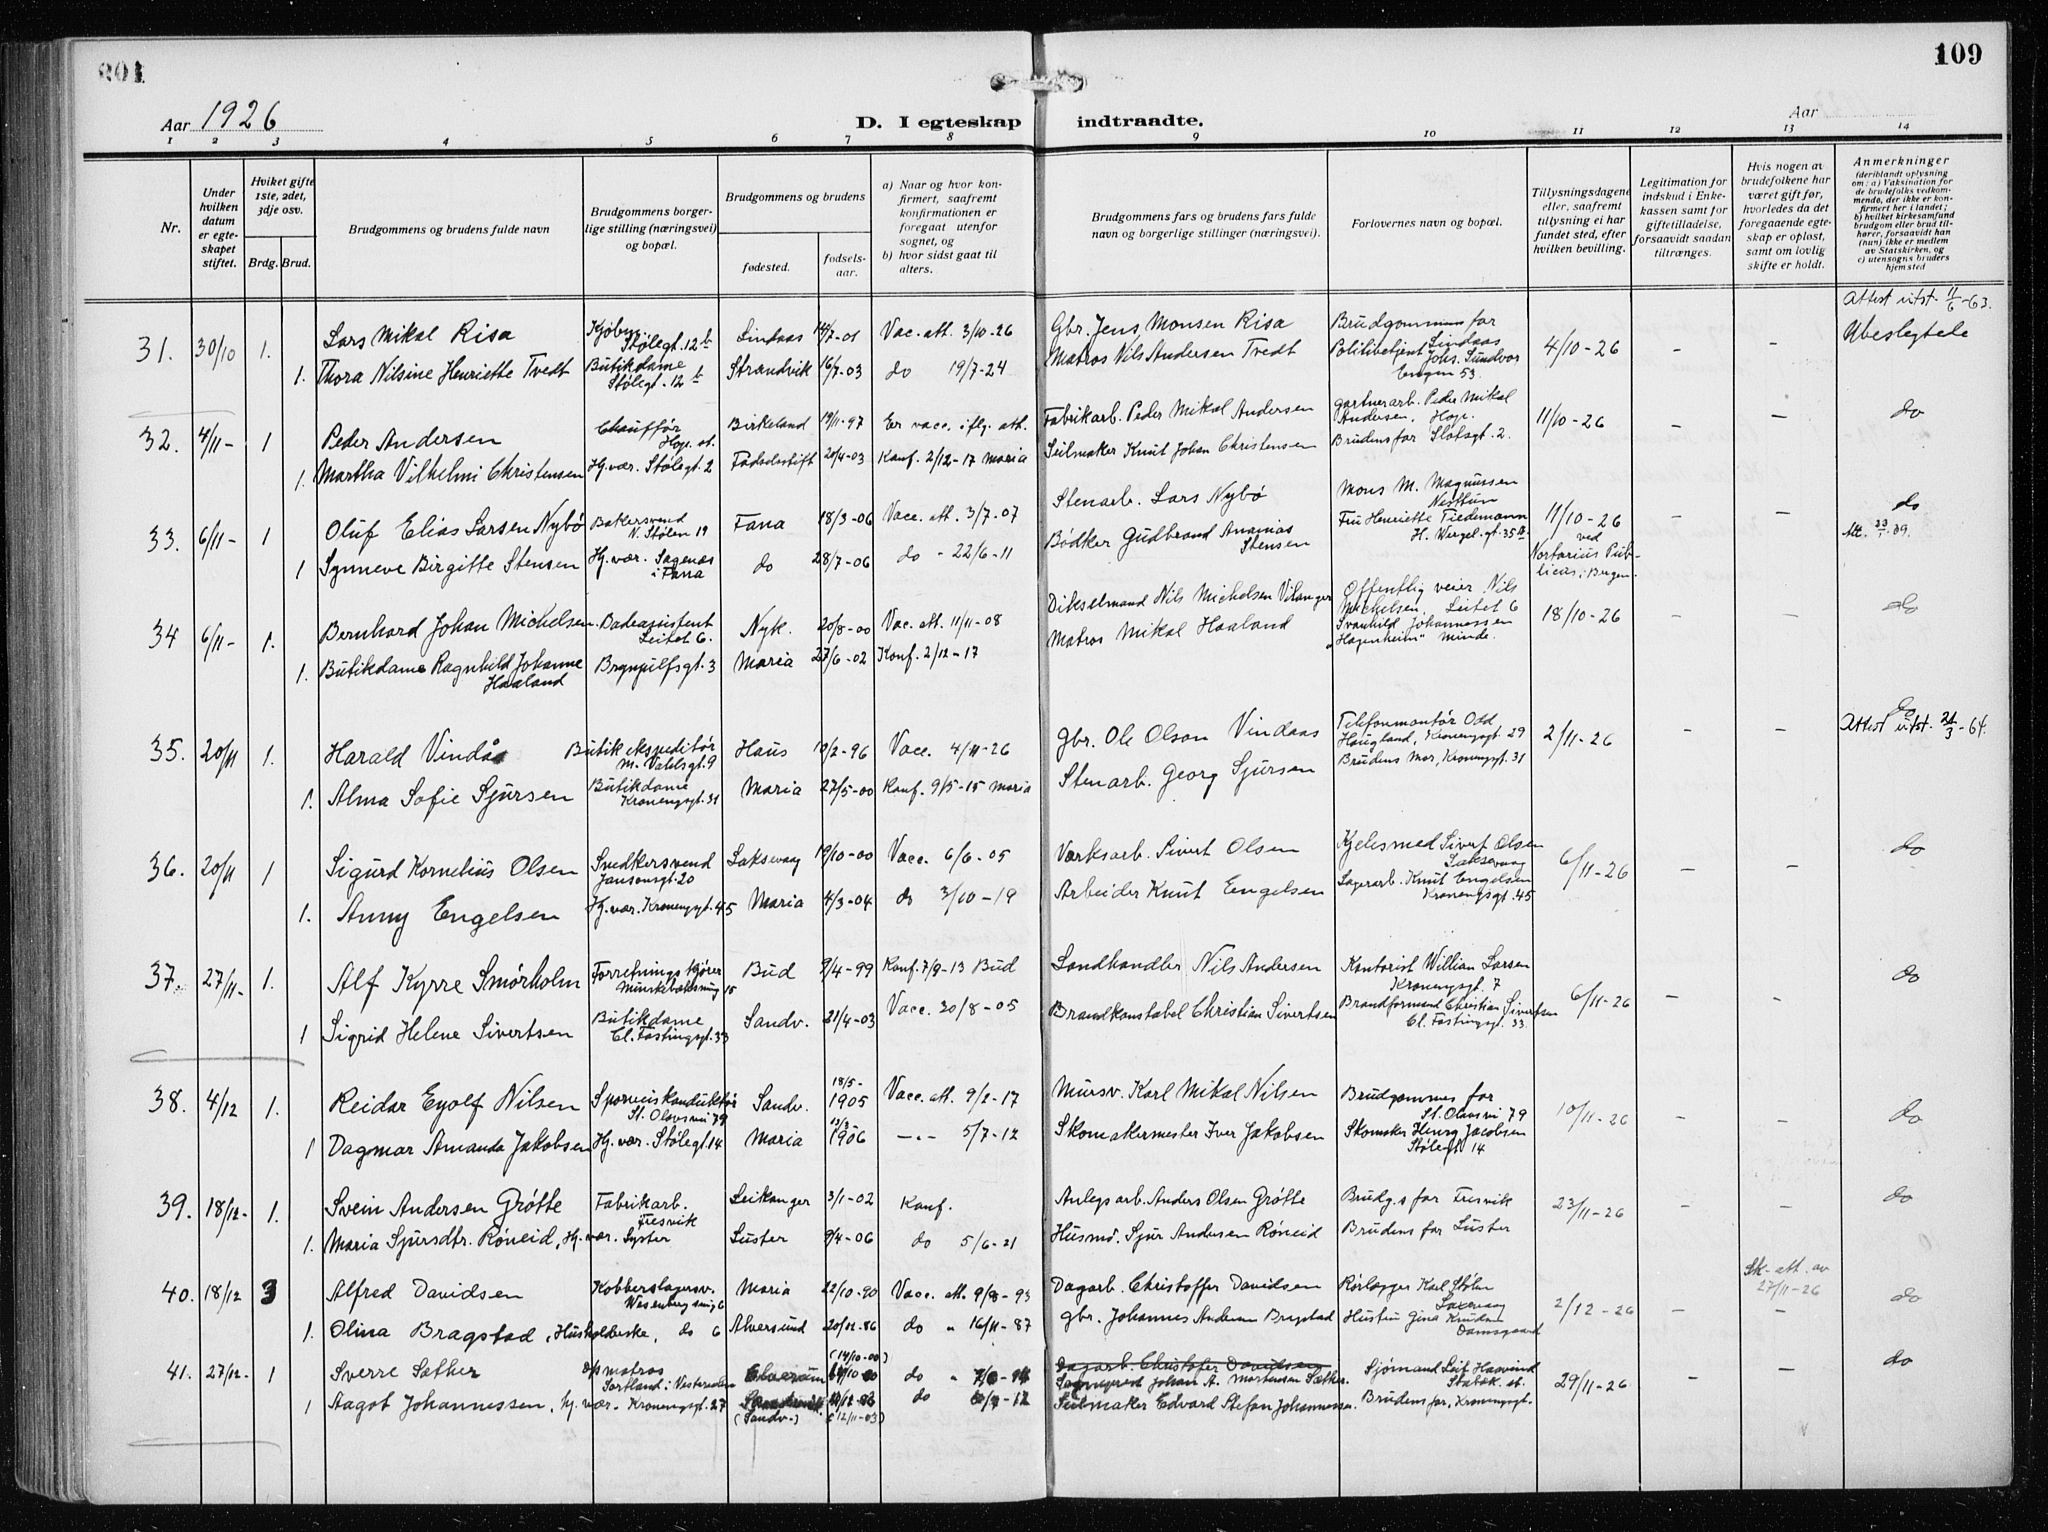 109
Aar 1926
D. I egteskap indtraadte.
Aar
1 2 3 4 5 6 7 8 9 10 11 12 13 14
Nr.
Under hvilken datum er egteskapet stiftet.
Hviket gifte 1ste, 2det, 3dje osv.
Brdg. Brud.
Brudgommens og brudens fulde navn
Brudgommens borgerlige stilling (næringsvei) og bopæl.
Brudgommens og brudens
fødested.
fødselsaar.
a) Naar og hvor konfirmert, saafremt konfirmationen er foregaat utenfor sognet, og
b) hvor sidst gaat til alters.
Brudgommens fars og brudens fars fulde navn og borgerlige stillinger (næringsvei).
Forlovernes navn og bopæl.
Tillysningsdagene eller, saafremt tillysning ei har fundet sted, efter hvilken bevilling.
Legitimation for indskud i Enkekassen samt for giftetilladelse, forsaavidt saadan tiltrænges.
Hvis nogen av brudefolkene har været gift før, hvorledes da det foregaaende egteskap er opløst, samt om lovlig skifte er holdt.
Anmerkninger
(deriblandt oplysning om: a) Vaksination for de brudefolks vedkommende, der ikke er konfirmert her i landet; b) hvilket kirkesamfund brudgom eller brud tilhører, forsaavidt han (hun) ikke er medlem av Statskirken, og c) utensogns bruders hjemsted
Attest utst. 11/6-63.
31. 30/10 1. Lars Mikal Risa Stølegt. 12b Lindaas 14/7-01 Vac. att. 3/10-26 Gbr. Jens Monsen Risa Brudgommens far Lindaas 4/10-26 - - Ubeslegtede
1. Thora Nilsine Henriette Tvedt Butikdame Stølegt. 12b Strandvik 16/7-03 do 19/7-24 Matros Nils Andersen Tvedt Politibetjent Johs. Sundvor Engen 53.
32. 4/11- 1 Peder Andersen Chauffør Hop st. Birkeland 19/11-97 Er vacc. iflg. att. Fabrikarb. Peder Mikal Andersen Gartnerarb. Peder Mikal Andersen, Hop. 11/10-26 - - do
1. Martha Vilhelmi Christensen Hj. vær. Stølegt. 2 Fødselsstift 20/4-03 Konf. 2/12-17 Maria Seilmaker Knut Johan Christensen Brudens far Slotsgt. 2.
33. 6/11- 1 Oluf Elias Larsen Nybø Bakersvend N. Stølen 19 Fana 18/3-06 Vacc. att. 3/7-07 Stenarb. Lars Nybø Mons M. Magnussen Nesttun 11/10-26 - - do
1 Synneve Birgitte Stensen Hj. vær. Sagenæs i Fana do 28/7-06 do - 22/6-11 Bødker Gudbrand Ananias Stensen Fru Henriette Tiedemann H. Wergel. gt. 35 ved Nortarius Publicus i Bergen.
34 6/11- 1. Bernhard Johan Michelsen Badeassistent Leitet 6. Nyk. 20/8-00 Vac. att. 11/11-08 Nils Michelsen Vilanger Offentlig veier Nils Michelsen, Leitet 6 18/10-26 - - do
1. Butikdame Ragnhild Johanne Haaland Brynjulfsgt. 3 Maria 27/6-02 Konf. 2/12-17 Matros Mikal Haaland Svanhild Johannessen "Hagenheim" Minde.
35. 20/11 1. Harald Vindås Butikekspeditør M. Vahlsgt. 9 Haus 19/2-96 Vacc. 4/11-26 Gbr. Ole Olson Vindaas Telefonmontør Odd Haugland, Kronengsgt. 29 2/11-26 - - do Attest utst. 21/3-64.
1. Alma Sofie Sjursen Butikdame Kronengsgt. 31 Maria 27/5-00 Konf. 9/5-15 Maria Stenarb. Georg Sjursen Brudens mor, Kronengsgt. 31
36. 20/11 1 Sigurd Kornelius Olsen Snedkersvend Jansonsgt. 20 Laksevaag 19/10-00 Vacc. 6/6-05 Værksarb. Sivert Olsen Kjelesmed Sivert Olsen Laksevaag 6/11-26 - - do
1. Anny Engelsen Hj. vær. Kronengsgt. 45 Maria 4/3-04 do 3/10-19 Arbeider Knut Engelsen Lagerarb. Knut Engelsen Kronengsgt. 45
37. 27/11- 1. Alf Kyrre Smørholm Forretningskjører Munkebæksmug 15 Bud 9/4-99 Konf. 7/9-13 Bud Landhandler Nils Andersen Kontorist Willian Larsen Kronengsgt. 7 6/11-26 - - do
1 Sigrid Helene Sivertsen Butikdame Cl. Fastingsgt. 33 Sandv. 21/4-03 Vacc. 20/8-05 Brandkonstabel Christian Sivertsen Brandformand Christian Sivertsen Cl. Fastingsgt. 33.
38. 4/12 1. Reidar Eyolf Nilsen Sporveiskonduktør St. Olavsvei 79 Sandv. 18/5-1905 Vacc. att. 9/2-17 Mursv. Karl Mikal Nilsen Brudgommens far St. Olavsvei 79 10/11-26 - - do
1 Dagmar Amanda Jakobsen Hj. vær. Stølegt. 14 Maria 1906 -"- 5/7-12 Skomakermester Iver Jakobsen Skomaker Henry Jacobsen Stølegt 14
39. 18/12- 1. Svein Andersen Grøtte Fabrikarb. Fresvik Leikanger 3/1-02 Konf. Anlegsarb. Anders Olsen Grøtte Brudg.s far Fresvik 23/11-26 - - do
1. Maria Sjursdtr. Røneid, Hj. vær. Lyster Luster 9/4-06 do 5/6-21 Husm. Sjur Andersen Røneid Brudens far Luster
Sk-att. av 27/11-26
40. 18/12 3 Alfred Davidsen Kobberslagersv. Wesenbergsmug 6 Maria 22/10-90 Vacc. att. 9/8-93 Dagarb. Christoffer Davidsen Rørlægger Karl Stølen 2/12-26 - - do
1. Olina Bragstad, Husholderske, do 6 Alversund 20/12-86 do " 16/11-87 Gbr. Johannes Andersen Bragstad Hustru Gina Knudsen Damsgaard
41. 27/12- 1 Sverre Sæther matros Sortland i Vesteraalen Elverum (14/10-00) do " Dagarb. Christofer Davidsen Johan A. Mortensen Sæther Sjømand Leif Stabæk st. 29/11-26 - - do
1 Aagot Johannessen, hj. vær. Kronengsgt. 27 (Sandv.) (12/11-03) do Seilmaker Edvard Stefan Johannessen. Brudens far, Kronengsgt.